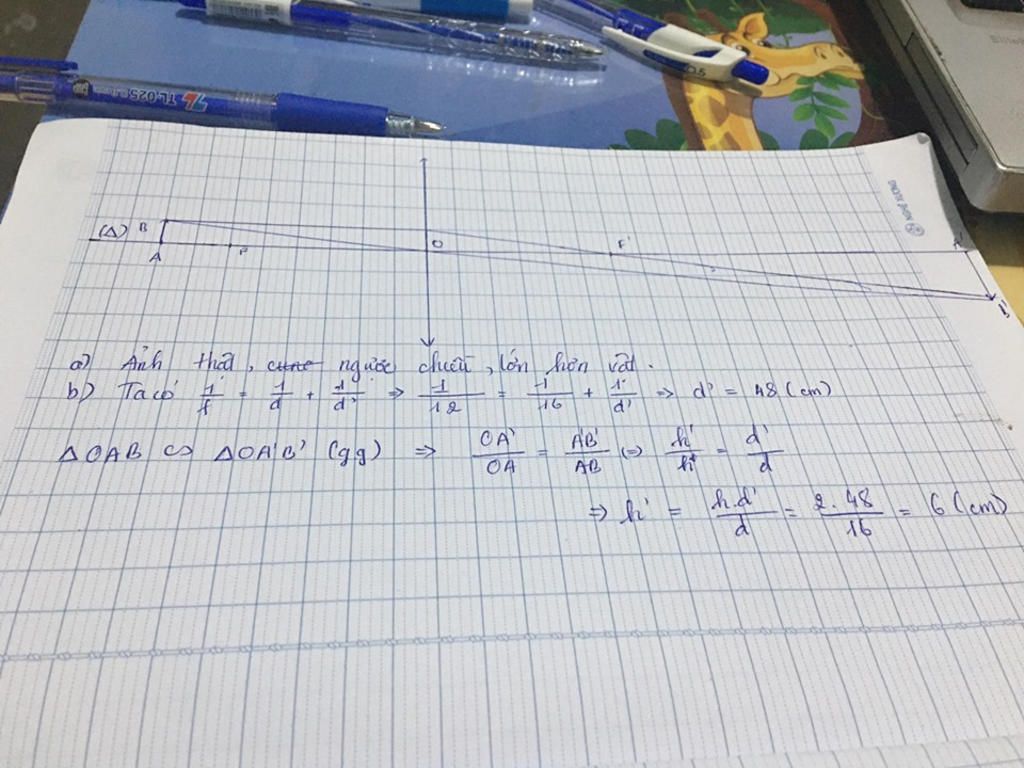 TL.025
0.5
Elite
NGHỆ XƯƠNG
(Δ) B O F' A'
A F B'
a) Ảnh thật, cung ngược chiều, lớn hơn vật.
b) Ta có 1/f = 1/d + 1/d' => 1/12 = 1/16 + 1/d' => d' = 48 (cm)
ΔOAB ∽ ΔOA'B' (gg) => OA'/OA = A'B'/AB (=) h'/h = d'/d
=> h' = h.d'/d = 2.48/16 = 6 (cm)